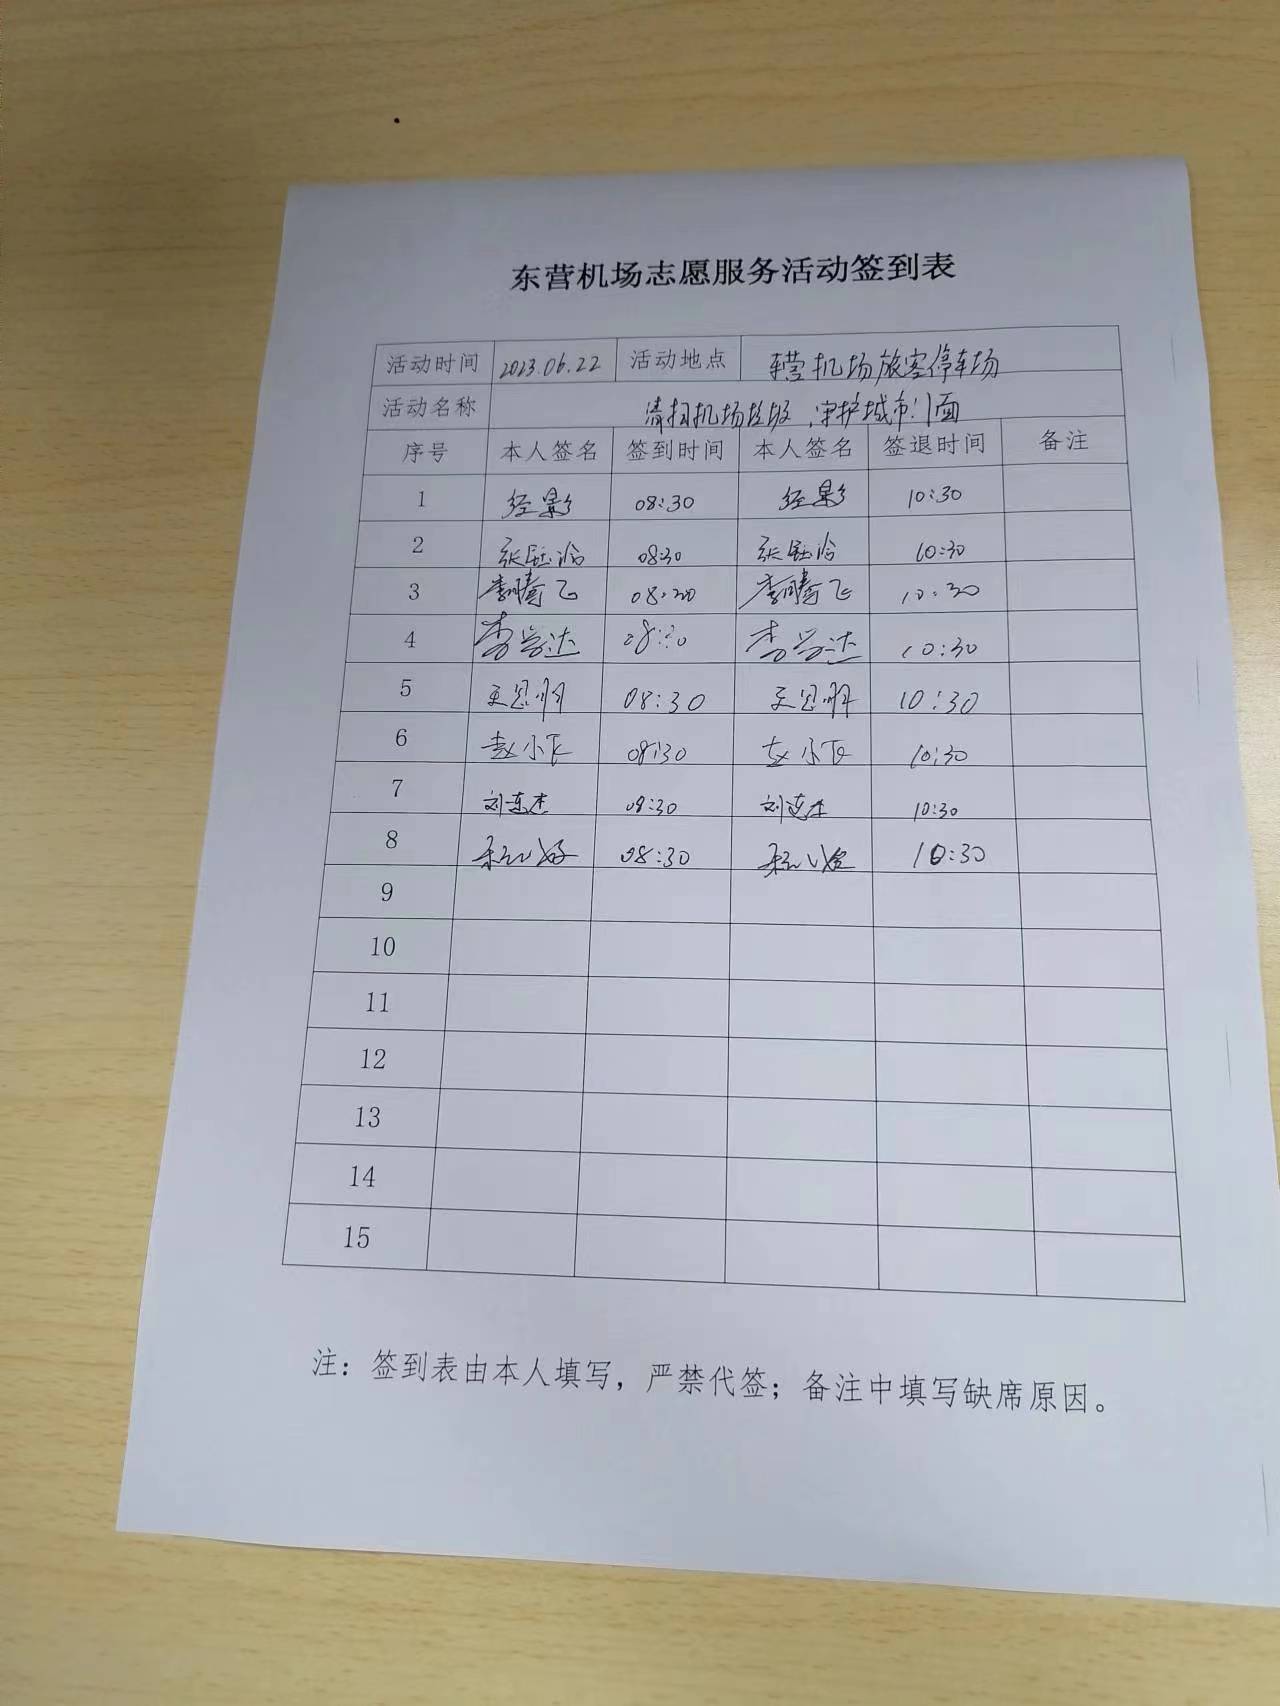 东营机场志愿服务活动签到表
活动时间 2023.06.22 活动地点 东营机场旅客停车场
活动名称 清扫机场垃圾,守护城市门面
序号 本人签名 签到时间 本人签名 签退时间 备注
1 经影 08:30 经影 10:30
2 张钰涵 08:30 张钰涵 10:30
3 李腾飞 08:30 李腾飞 10:30
4 李学达 08:30 李学达 10:30
5 08:30 10:30
6 赵小飞 08:30 赵小飞 10:30
7 刘连杰 08:30 刘连杰 10:30
8 08:30 10:30
9
10
11
12
13
14
15
注：签到表由本人填写，严禁代签；备注中填写缺席原因。